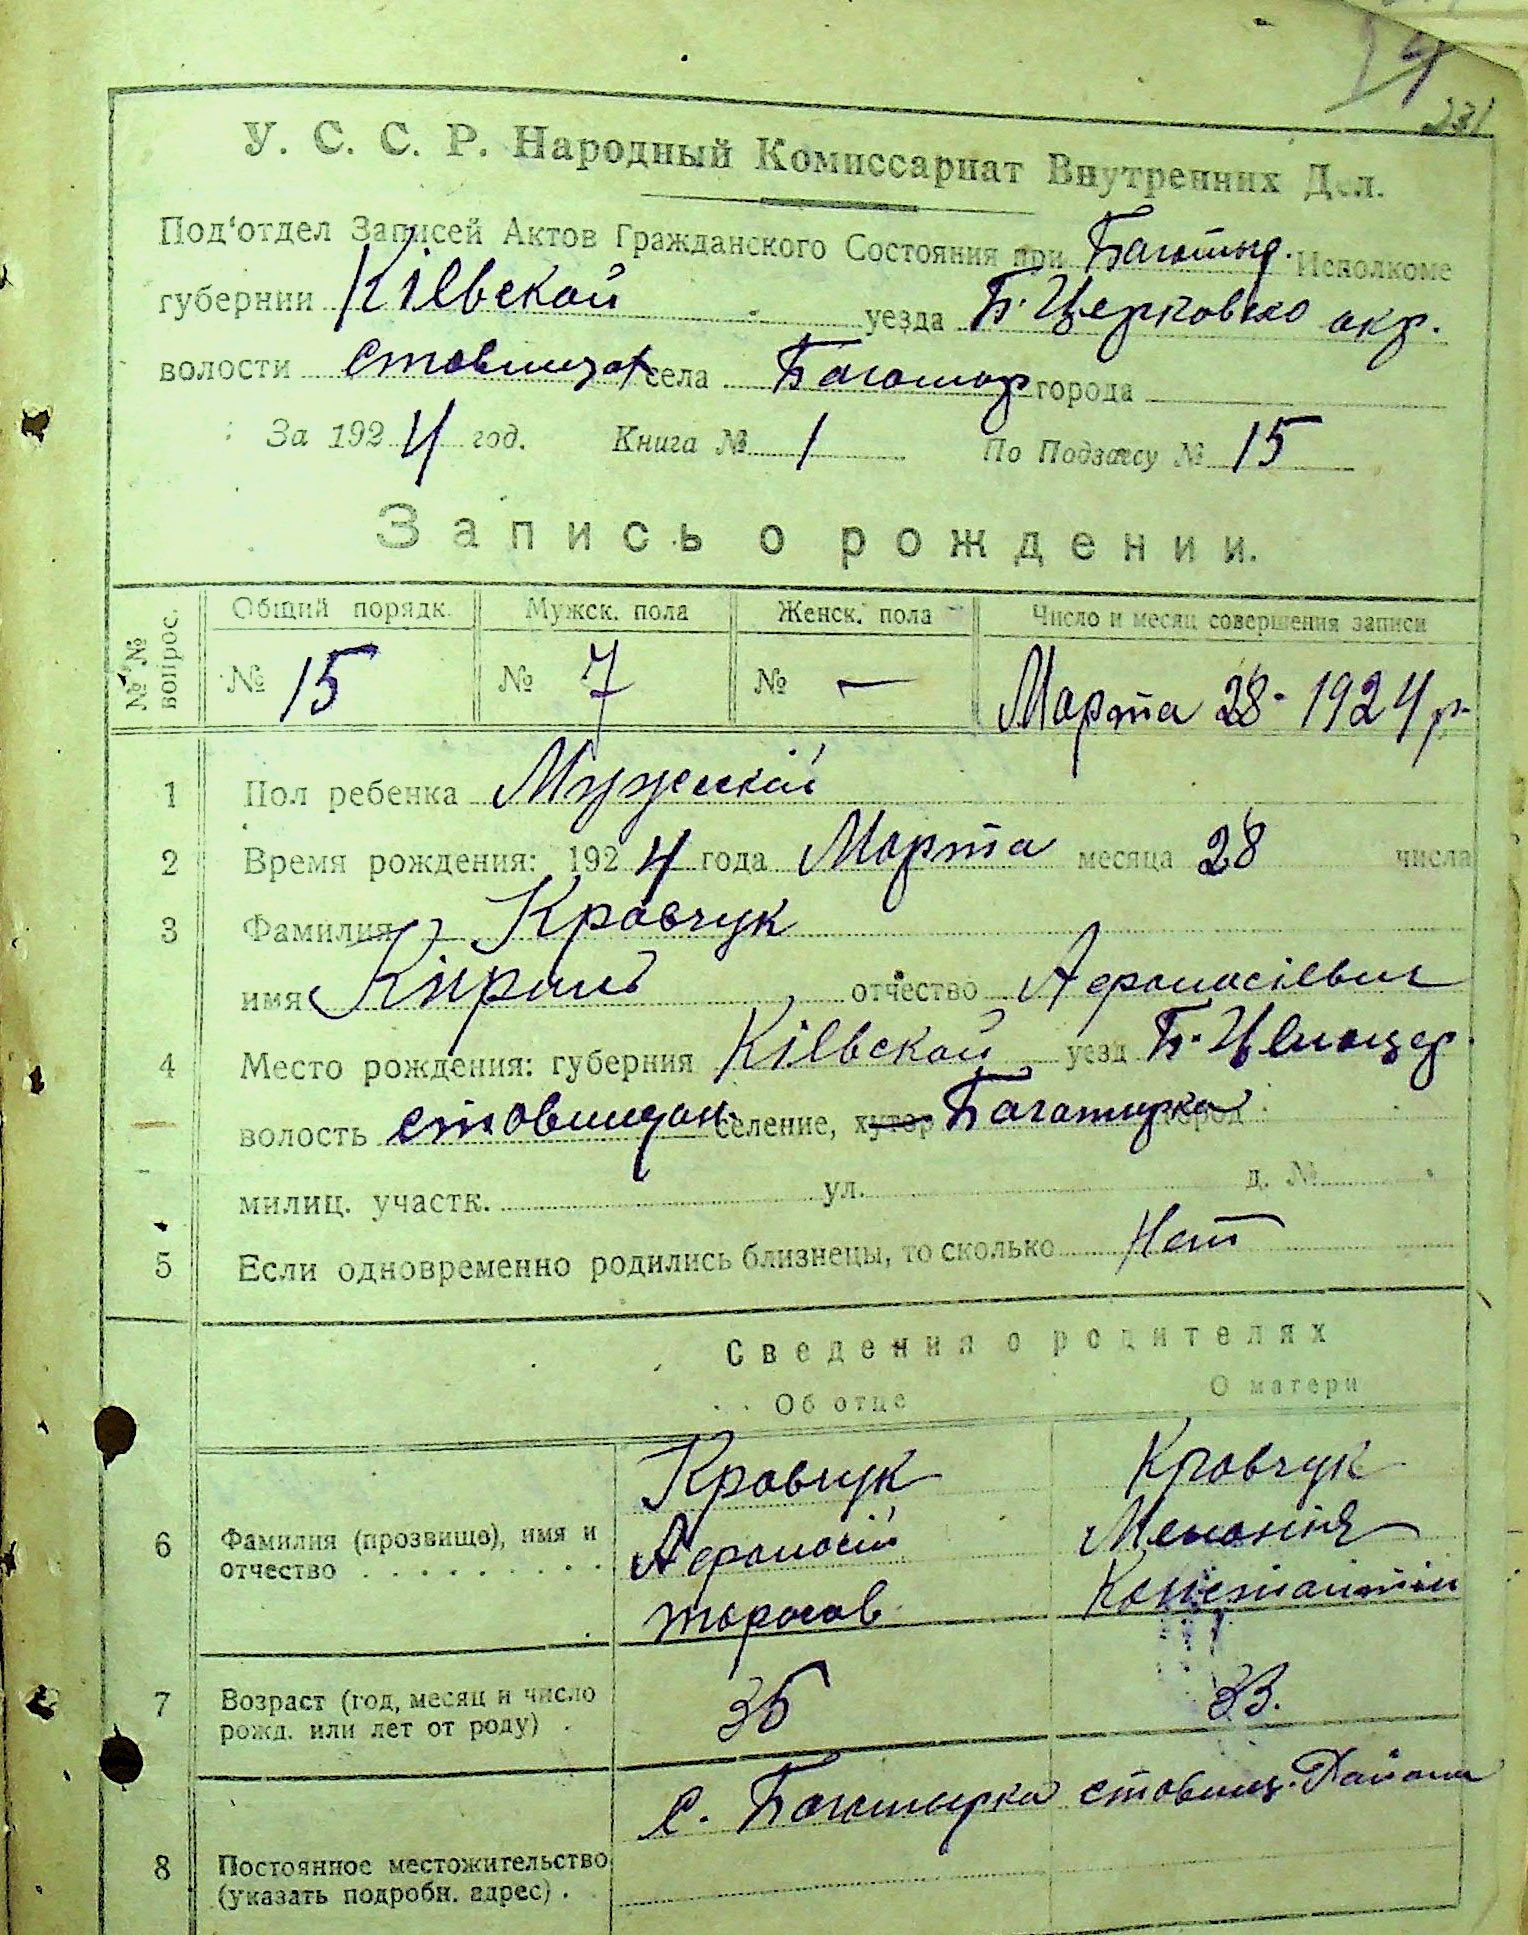 231
У. С. С. Р. Народный Комиссариат Внутренних Дел.
Под'отдел Записей Актов Гражданского Состояния при Багатыр. Исполкоме
губернии Кіевской уезда Б. Церковско окр.
волости ставищан села Багатыр города
За 1924 год. Книга № 1 По Подзагсу № 15
Запись о рождении.
№№ вопрос. Общий порядк. Мужск. пола Женск. пола Число и месяц совершения записи
№ 15 № 7 № — Марта 28 - 1924 р.
1 Пол ребенка Мужескій
2 Время рождения: 1924 года Марта месяца 28 числа
3 Фамилия Кравчук
имя Кирилъ отчество Афанасіевич
4 Место рождения: губерния Кіевской уезд
волость ставищан селение, хутор Багатырка город
милиц. участк. ул. д. №
5 Если одновременно родились близнецы, то сколько Нет
Сведения о родителях
Об отце О матери
Кравчук Кравчук
6 Фамилия (прозвище), имя и Афанасій Меланія
отчество . . . . . . . . . тарасов Константин
7 Возраст (год, месяц и число 35 33.
рожд. или лет от роду) .
с. Багатырка ставищ. Района
8 Постоянное местожительство
(указать подробн. адрес) .